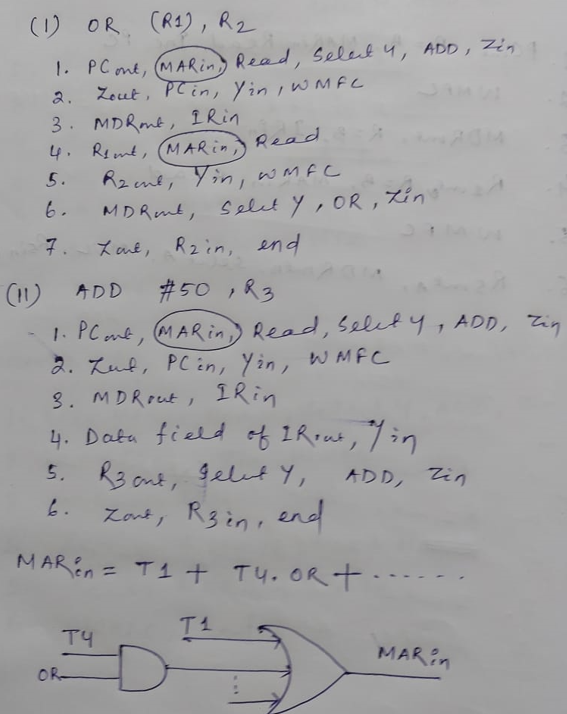 (I) OR (R1), R2
1. PCout, MARin, Read, Select 4, ADD, Zin
2. Zout, PCin, Yin, WMFC
3. MDRout, IRin
4. R1out, MARin, Read
5. R2out, Yin, WMFC
6. MDRout, Select Y, OR, Zin
7. Zout, R2in, end
(II) ADD #50, R3
1. PCout, MARin, Read, Select 4, ADD, Zin
2. Zout, PCin, Yin, WMFC
3. MDRout, IRin
4. Data field of IRout, Yin
5. R3out, Select Y, ADD, Zin
6. Zout, R3in, end
MARin = T1 + T4. OR + ......
T4
T1
OR
MARin